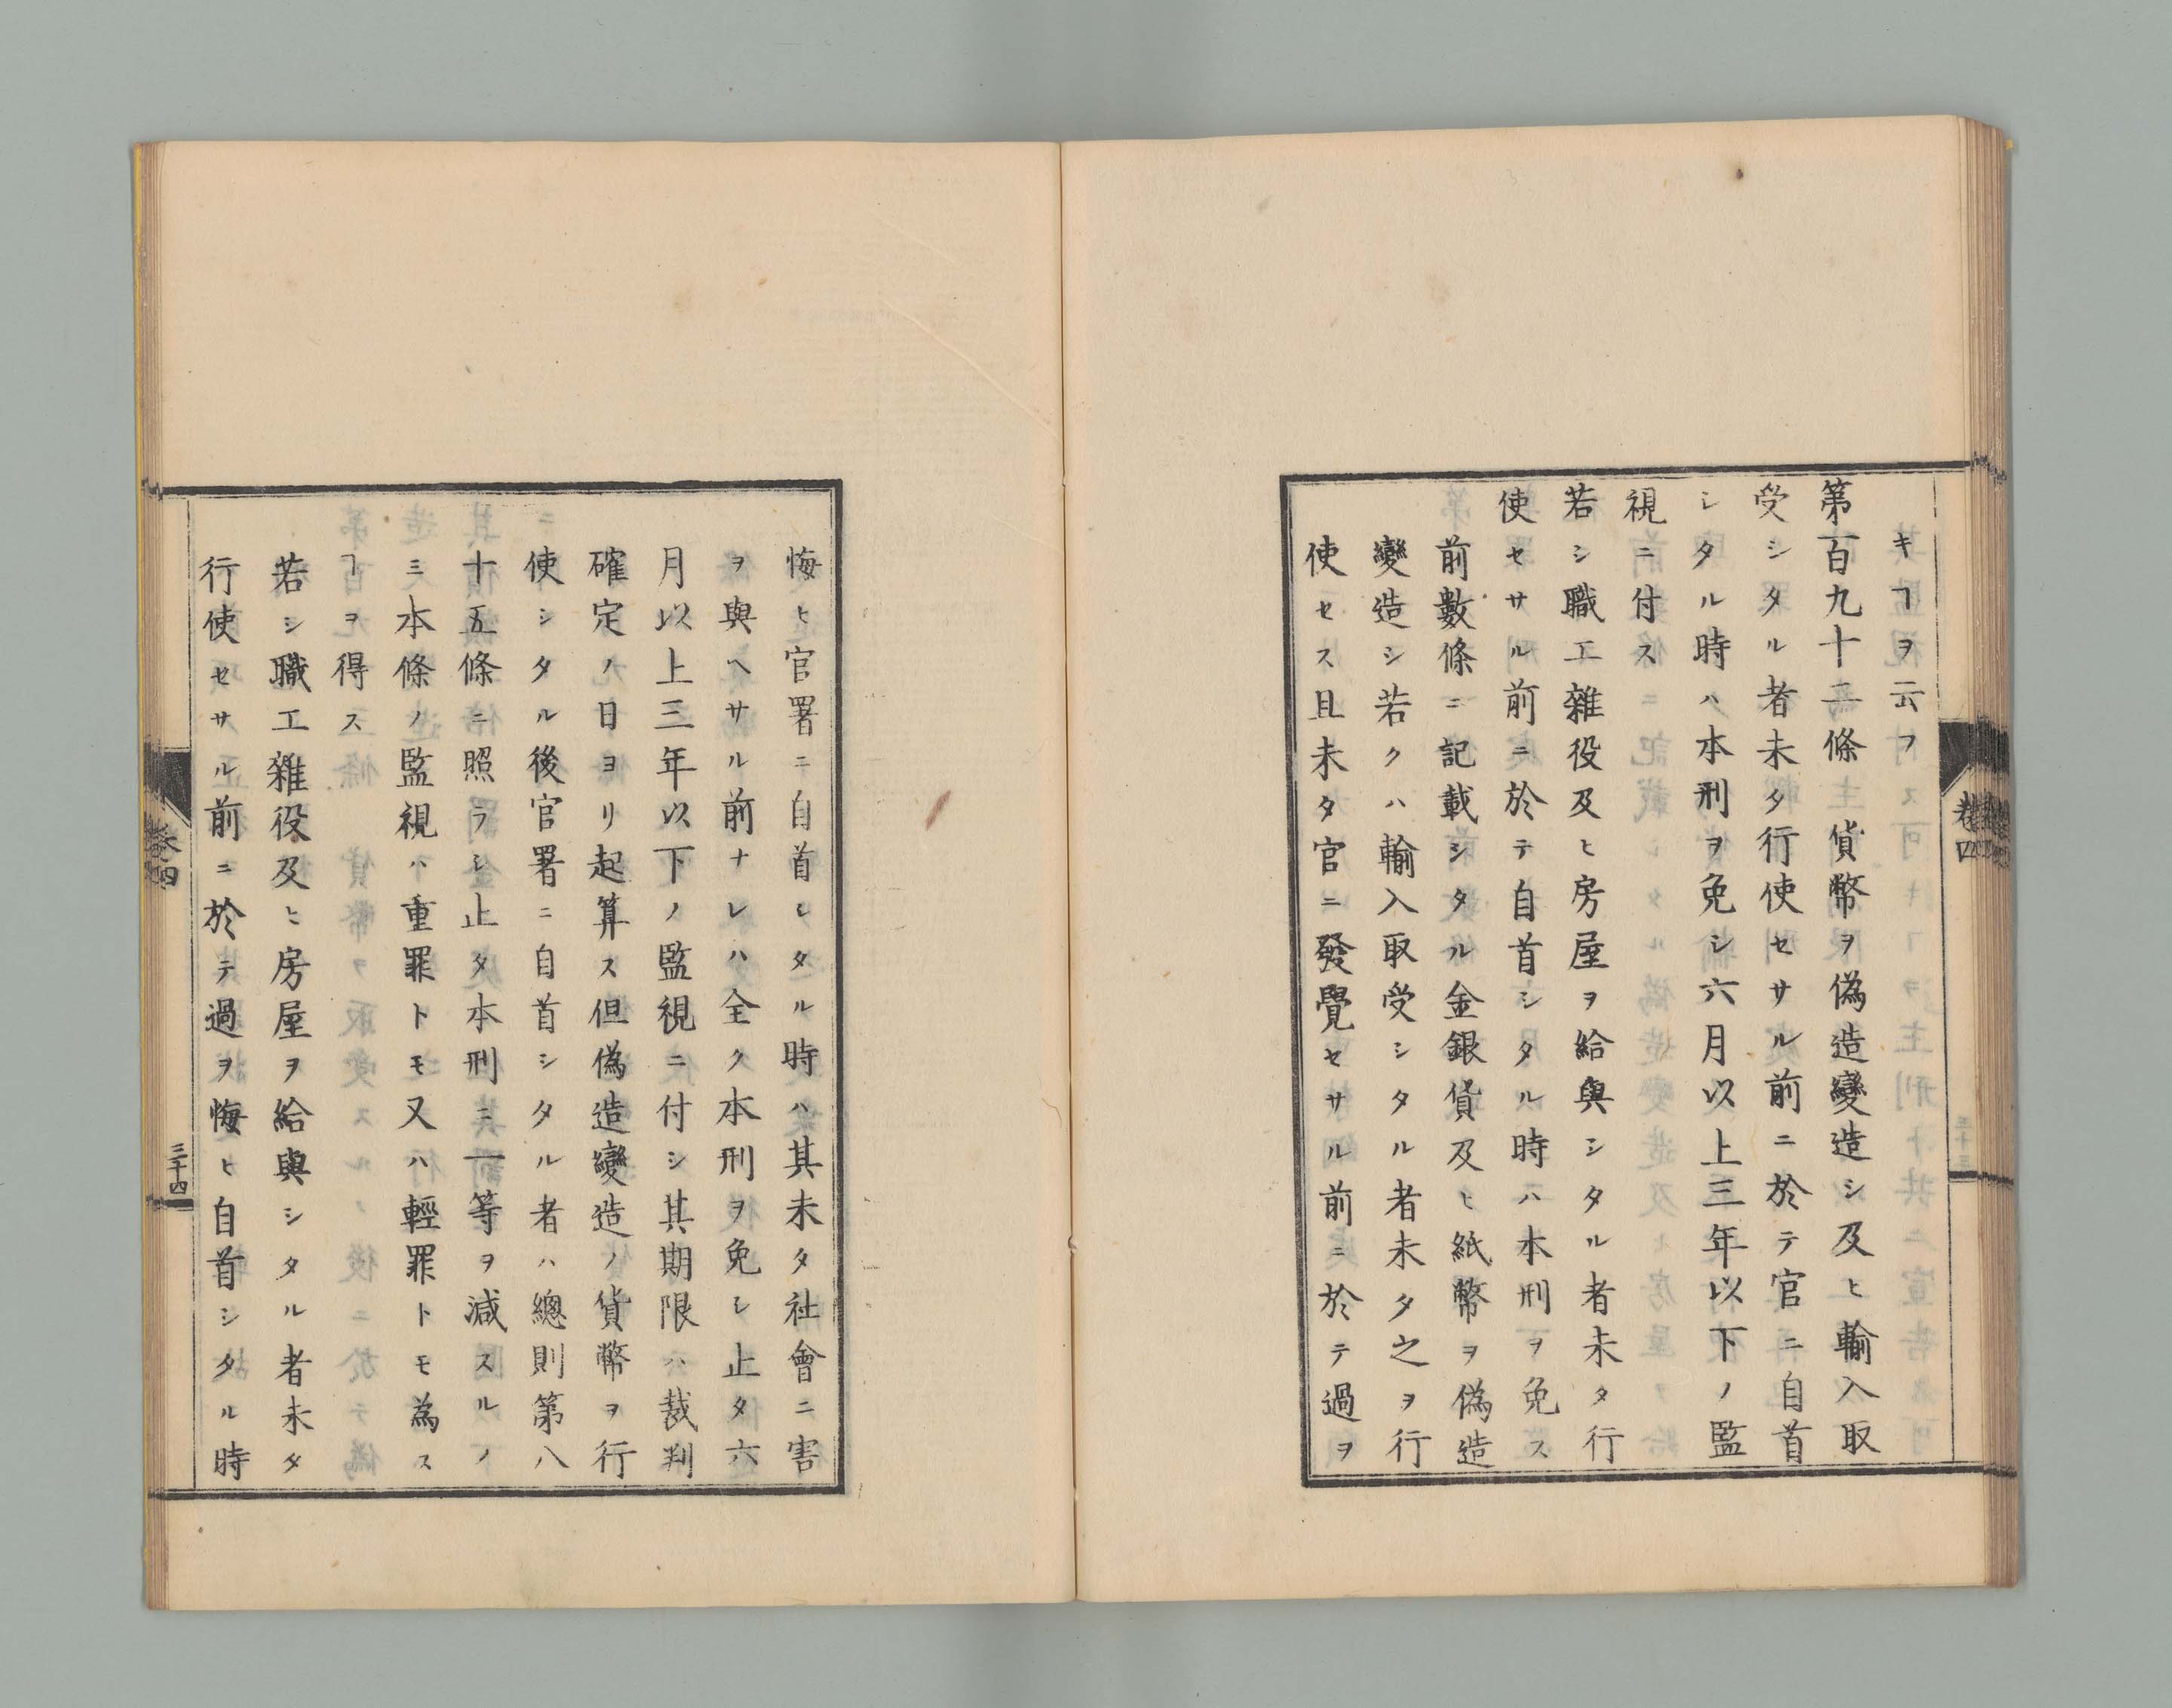 キヿヲ云フ
第百九十二條 貨幣ヲ偽造變造シ及ヒ輸入取
受シタル者未タ行使セサル前ニ於テ官ニ自首
シタル時ハ本刑ヲ免シ六月以上三年以下ノ監
視ニ付ス
若シ職工雜役及ヒ房屋ヲ給與シタル者未タ行
使セサル前ニ於テ自首シタル時ハ本刑ヲ免ス
前數條ニ記載シタル金銀貨及ヒ紙幣ヲ偽造
變造シ若クハ輸入取受シタル者未タ之ヲ行
使セス且未タ官ニ發覺セサル前ニ於テ過ヲ
卷四
悔ヒ官署ニ自首シタル時ハ其未タ社會ニ害
ヲ與ヘサル前ナレハ全ク本刑ヲ免シ止タ六
月以上三年以下ノ監視ニ付シ其期限ハ裁判
確定ノ日ヨリ起算ス但偽造變造ノ貨幣ヲ行
使シタル後官署ニ自首シタル者ハ總則第八
十五條ニ照ラシ止タ本刑ニ一等ヲ減スルノ
ミ本條ノ監視ハ重罪トモ又ハ輕罪トモ為ス
ヿヲ得ス
若シ職工雜役及ヒ房屋ヲ給與シタル者未タ
行使セサル前ニ於テ過ヲ悔ヒ自首シタル時
卷四
三十四